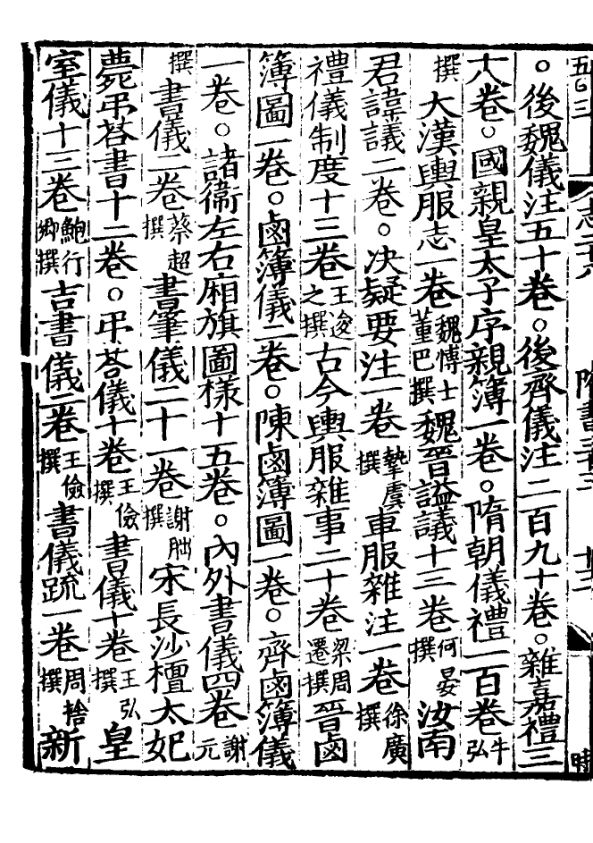 隋書三十三 十二
。後魏儀注五十卷。後齊儀注二百九十卷。雜嘉禮三
十八卷。國親皇太子序親簿一卷。隋朝儀禮一百卷牛弘
撰大漢輿服志一卷魏博士董巴撰魏晉謚議十三卷何晏撰汝南
君諱議二卷。决疑要注一卷摯虞撰車服雜注一卷徐廣撰
禮儀制度十三卷王逡之撰古今輿服雜事二十卷梁周遷撰晉鹵
簿圖一卷。鹵簿儀二卷。陳鹵簿圖一卷。齊鹵簿儀
一卷。諸衞左右廂旗圖樣十五卷。內外書儀四卷謝元
撰書儀二卷蔡超撰書筆儀二十一卷謝朏撰宋長沙檀太妃
薨弔荅書十二卷。弔荅儀十卷王儉撰書儀十卷王弘撰皇
室儀十三卷鮑行卿撰吉書儀二卷王儉撰書儀疏一卷周捨撰新